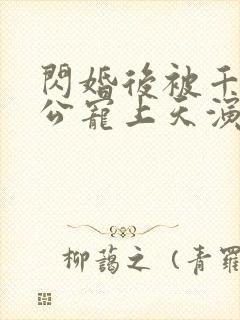 閃婚後被千
公寵上天演
柳藹之 (青羅